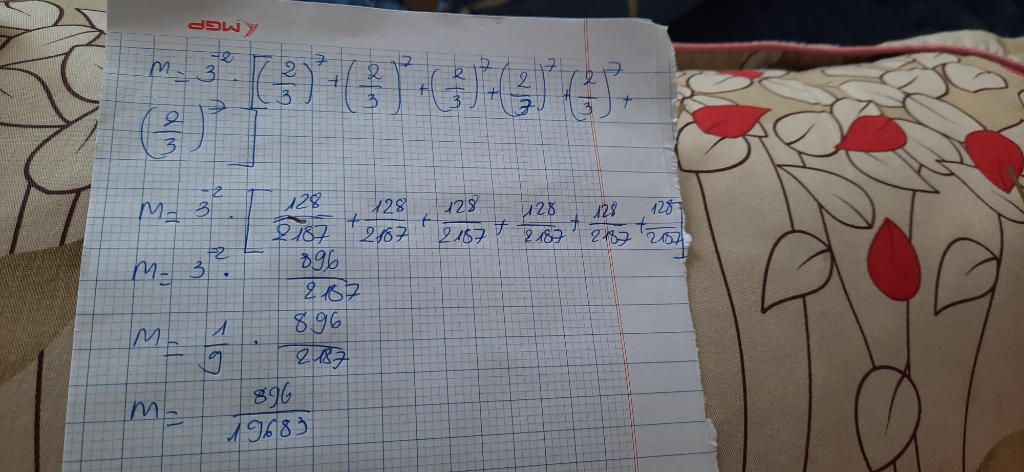 MGP
M = 3^-2 · [(2/3)^7 + (2/3)^7 + (2/3)^7 + (2/3)^7 + (2/3)^7 +
(2/3)^7]
M = 3^-2 · [128/2187 + 128/2187 + 128/2187 + 128/2187 + 128/2187 + 128/2187]
M = 3^-2 · 896/2187
M = 1/9 · 896/2187
M = 896/19683